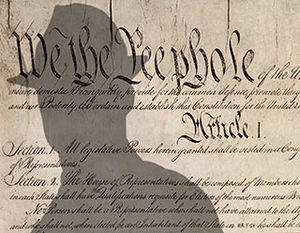 We the Peephole of the U
insure domestic Tranquility, provide for the common defence, promote the g
and our Posterity, do ordain and establish this Constitution for the United
Article. I.
Section. 1. All legislative Powers herein granted shall be vested in a Cong
of Representatives.
Section. 2. The House of Representatives shall be composed of Members
in each State shall have Qualifications requisite for Electors of the most numerous B
No Person shall be a Representative who shall not have attained to the
and who shall not, when elected, be an Inhabitant of that State in which he